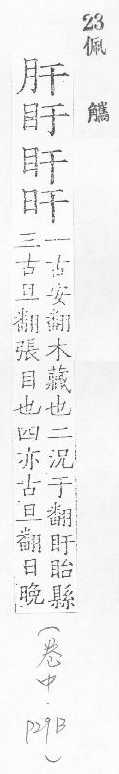 23佩觿
肝盱旰旰
一古安翻木藏也二況于翻盱眙縣
三古旦翻張目也四亦古旦翻日晚
(卷中.P29B)